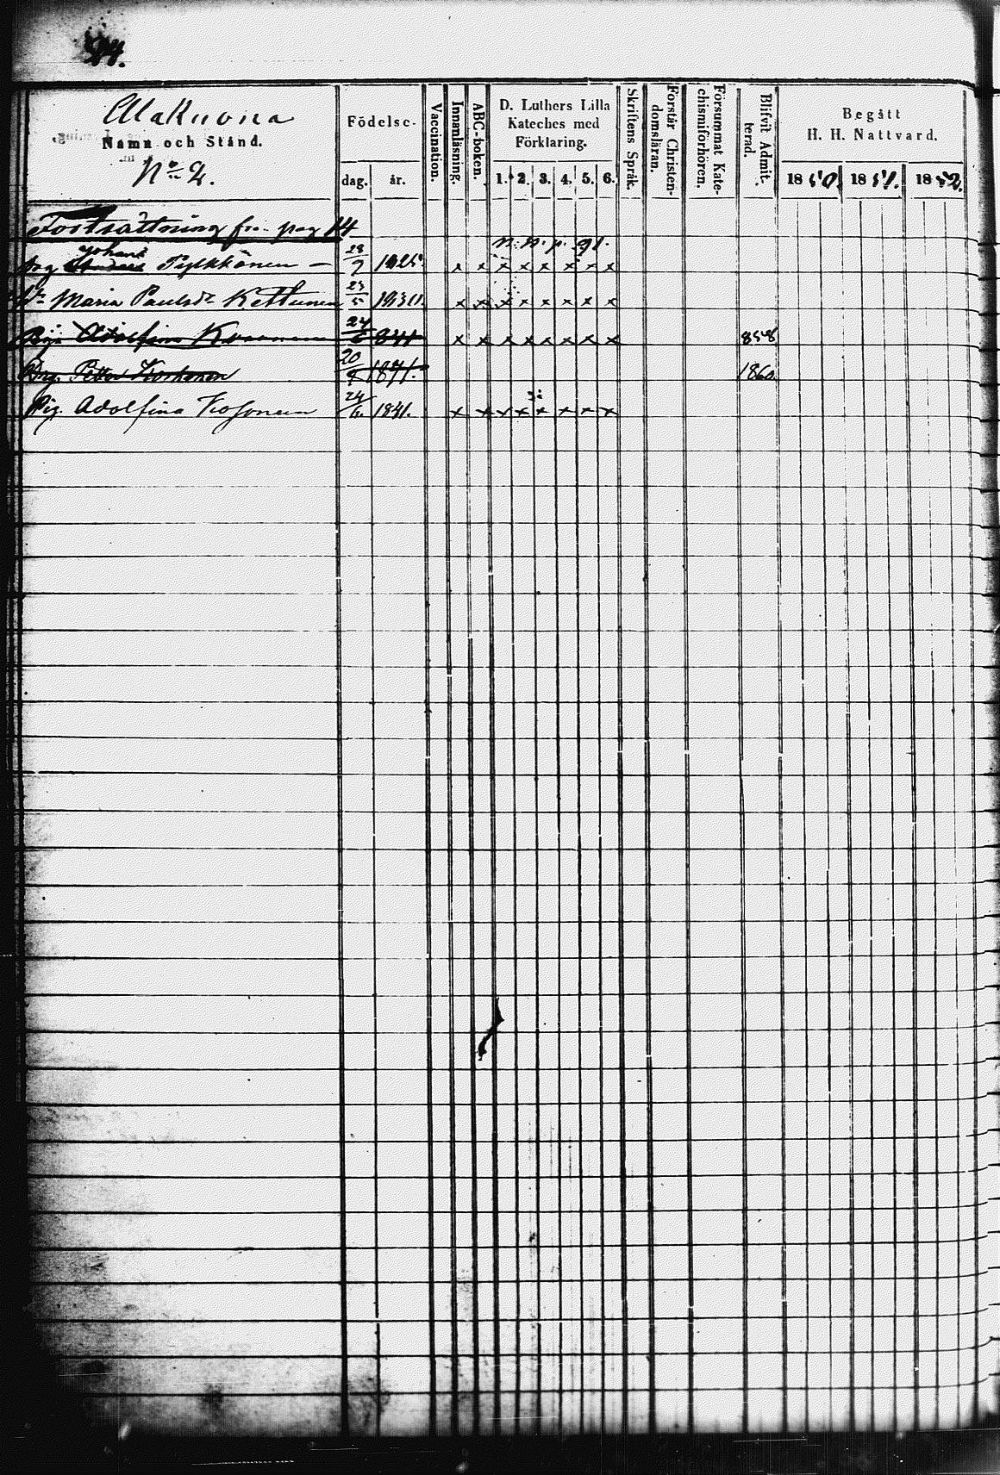 Alakuona
Namn och Stånd.
No 2.
Födelse-
dag. år.
Vaccination.
Innanläsning.
ABC-boken.
D. Luthers Lilla
Kateches med
Förklaring.
1. 2. 3. 4. 5. 6.
Skriftens Språk.
Förstår Christen-
domsläran.
Försummat Kate-
chismiförhören.
Blifvit Admit-
terad.
Begått
H. H. Nattvard.
1850. 1851. 1852.
Fortsättning fr. pag 14
n. n. p. g l.
Johan Pylkkönen 28/9 1825 x x x x x x x x
Maria Paulsdr Kettunen 23/5 x x x x x x x x
Adolfina 24/6 841 x x x x x x x x 858
Petter Korhonen 20/9 1841. 1860
Pig. Adolfina 24/6 1841. x x x x x x x x